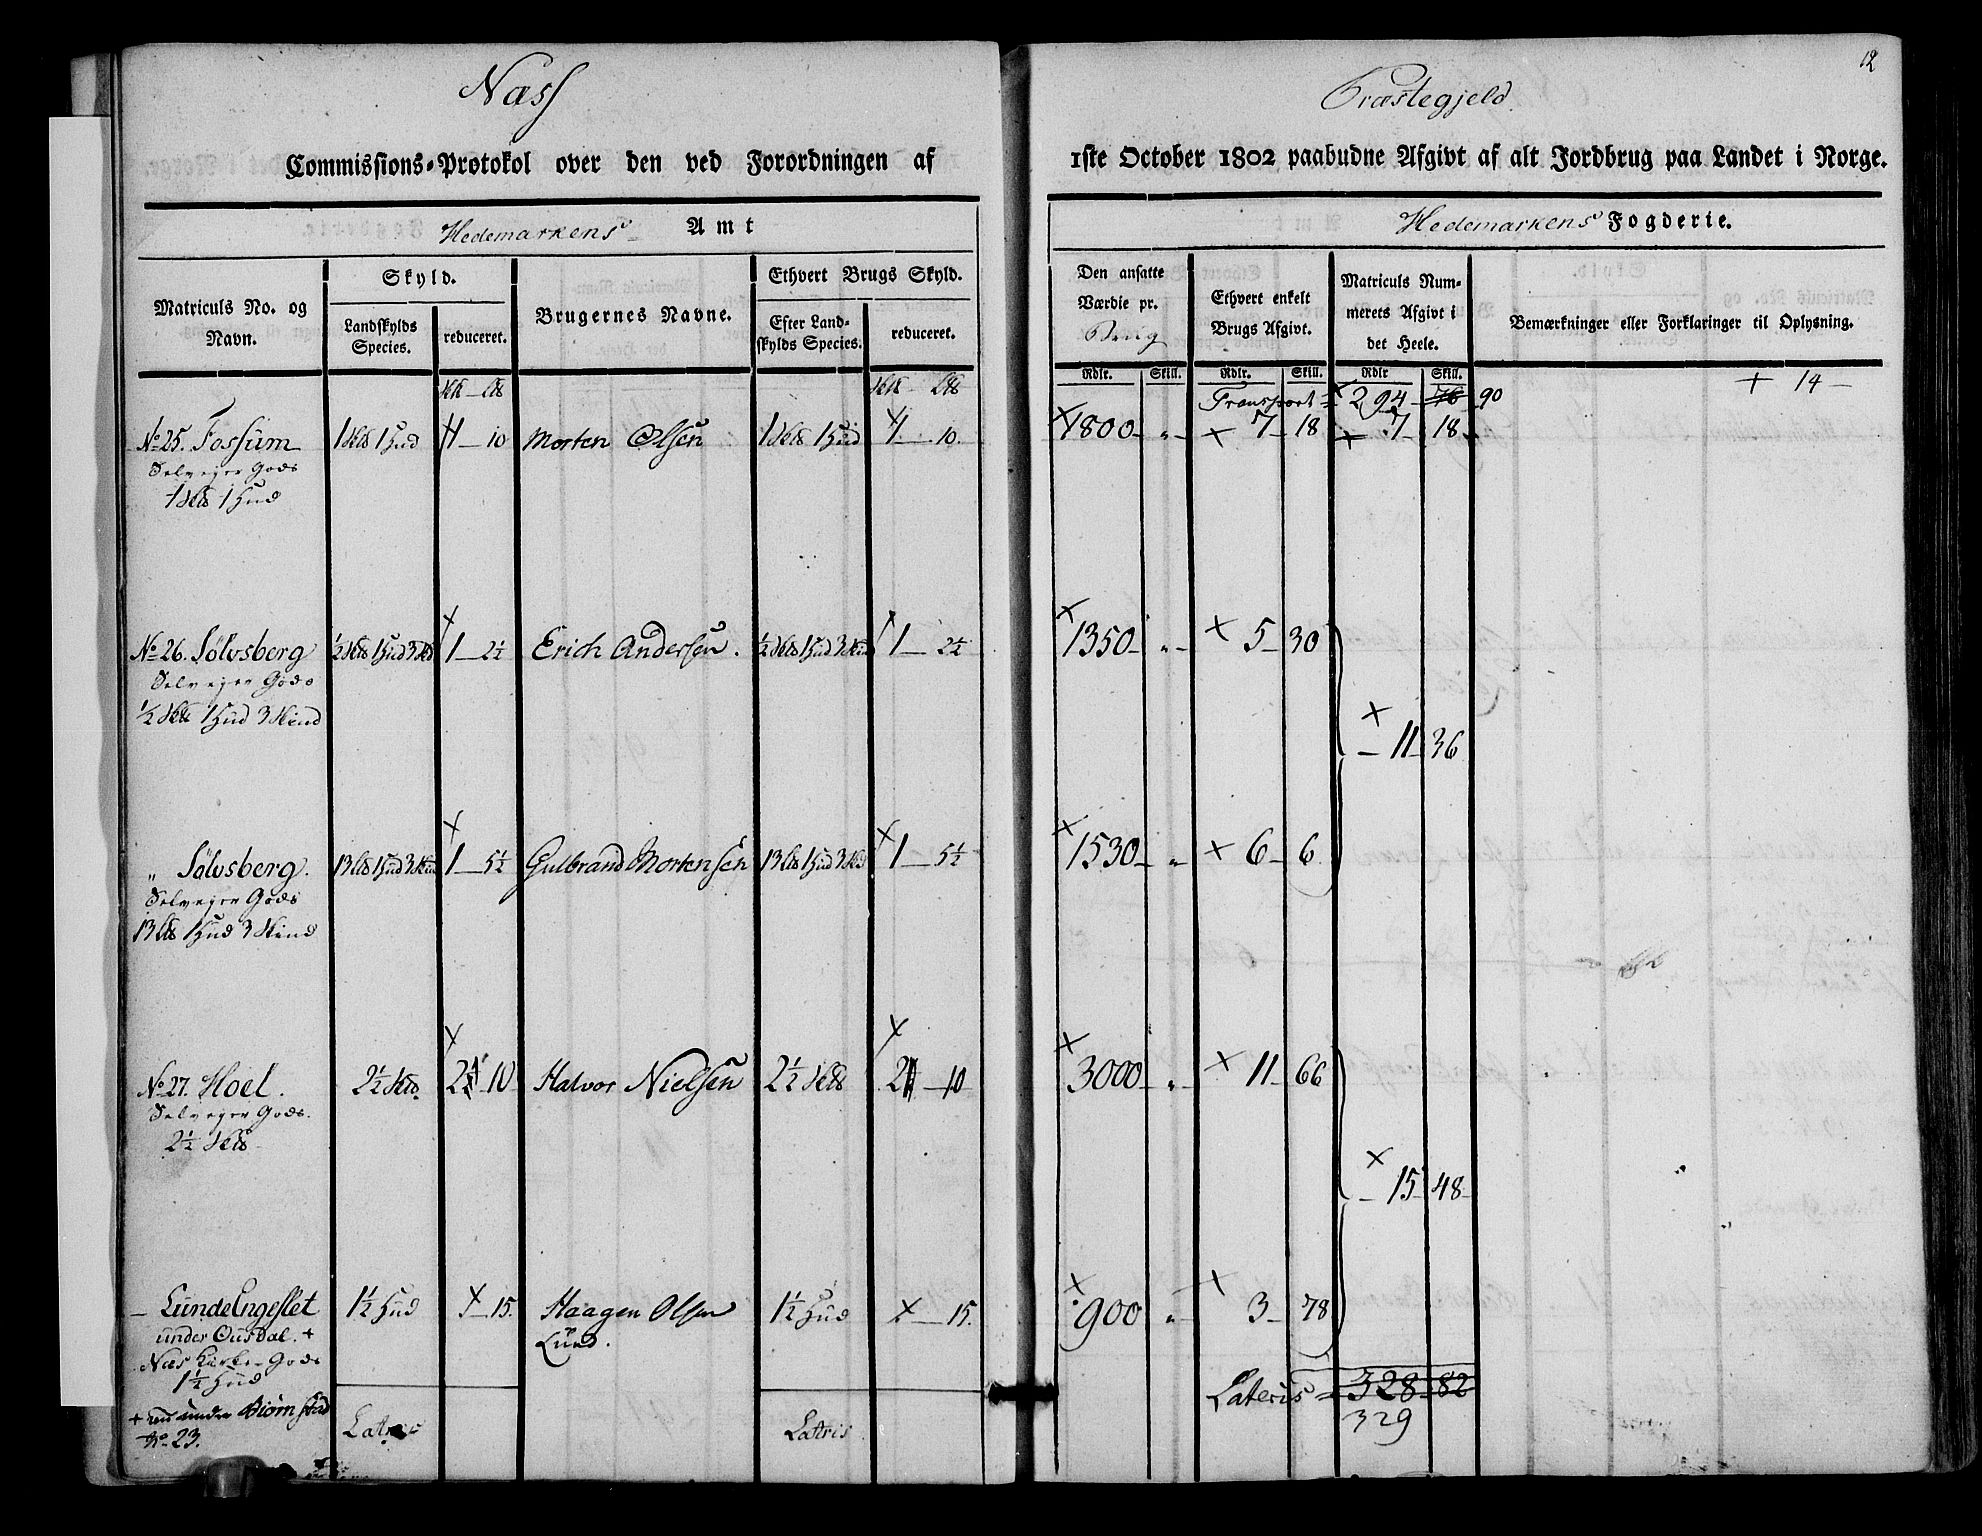 12
Næss Præstegjeld
Commissions-Protokol over den ved Forordningen af 1ste October 1802 paabudne Afgivt af alt Jordbrug paa Landet i Norge.
Hedemarkens Amt
Hedemarkens Fogderie.
Matriculs No. og Navn.
Skyld.
Landskylds Species.
reduceret.
Brugernes Navne.
Ethvert Brugs Skyld.
Efter Landskylds Species.
reduceret.
Den ansatte Værdie pr. Brug
Ethvert enkelt Brugs Afgivt.
Matriculs Nummerets Afgivt i det Heele.
Bemærkninger eller Forklaringer til Oplysning.
Rdlr. Skill. Rdlr. Skill. Rdlr Skill.
Transport = 294 — 76 90 + 14 —
No 25. Fossum 1 Hud 1 — 10 Morten Olsen 1 Hud 1 — 10. 1800 — „ — 7 — 18 — 7 — 18
Selvejer Gods
1 Hud
No 26. Sölvsberg ½ 1 Hud 3 1 — 2½ Erich Andersen. ½ 1 Hud 3 1 — 2½ 1350 — „ — 5 — 30
Selvejer Gods
½ 1 Hud 3 Skind
— 11 — 36
„ Sölvsberg. 13 1 Hud 3 1 — 5½ Gulbrand Mortensen 13 1 Hud 3 1 — 5½ 1530 — „ 6 — 6
Selvejer Gods
13 1 Hud 3 Skind
No 27. Hoel. 2½ 2 10 Halvor Nielsen 2½ 2 — 10 3000 — „ 11 — 66
Selvejer Gods.
2½
— 15 — 48
— Lunde Engeslet 1½ Hud — 15. Haagen Olsen 1½ Hud — 15. 900 — „ 3 — 78
under Ousdal. + Lund.
Næs Kirke-Gods
1½ Hud
+ nu under Biørnstad
No 23.
Latris
Latris
Lateris = 328 — 82
329